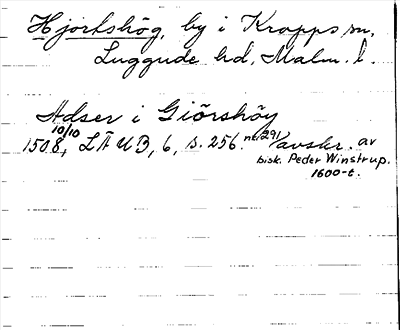 Hjortshög, by i Kropps sn,
Luggude hd, Malm. l.
Adser i Giörshöy
10/10
1508, LÄUB, 6, s. 256. nr 291/avskr. av
bisk. Peder Winstrup.
1600-t.